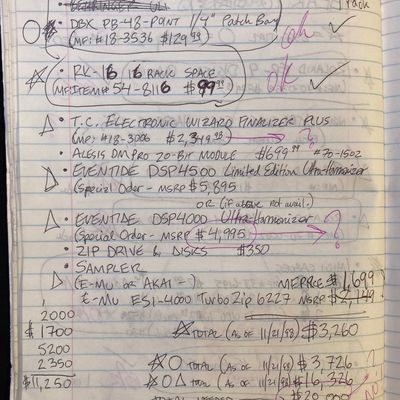 1 Rack
• DBX PB-48-POINT 1/4" Patch Bay
(MF: #18-3536 $129.99) ok ✓
• RK-16 16 RACK SPACE
(MF ITEM# 54-8116 $99.99) ok ✓
• T.C. ELECTRONIC WIZARD FINALIZER PLUS
(MF: #18-3006 $2,349.98) → ?
• ALESIS DM PRO 20-BIT MODULE $699.99 #70-1502
• EVENTIDE DSP4500 Limited Edition Ultra-Harmonizer
(Special Order - MSRP $5,895
OR (if above not avail.)
• EVENTIDE DSP4000 Ultra-Harmonizer
(Special Order - MSRP $4,995) → ?
• ZIP DRIVE & DISKS $350
• SAMPLER
(E-MU OR AKAI - ) MF PRICE $1,699
E-MU ESI-4000 Turbo Zip 6227 MSRP $2,149
2000
$1700
5200
2350
$11,250
☆ TOTAL (AS OF 11/21/98) $3,260
☆O TOTAL (AS OF 11/21/98) $3,726 ?
☆O△ TOTAL (AS OF 11/21/98) $16,326
TOTAL $20,000 NO